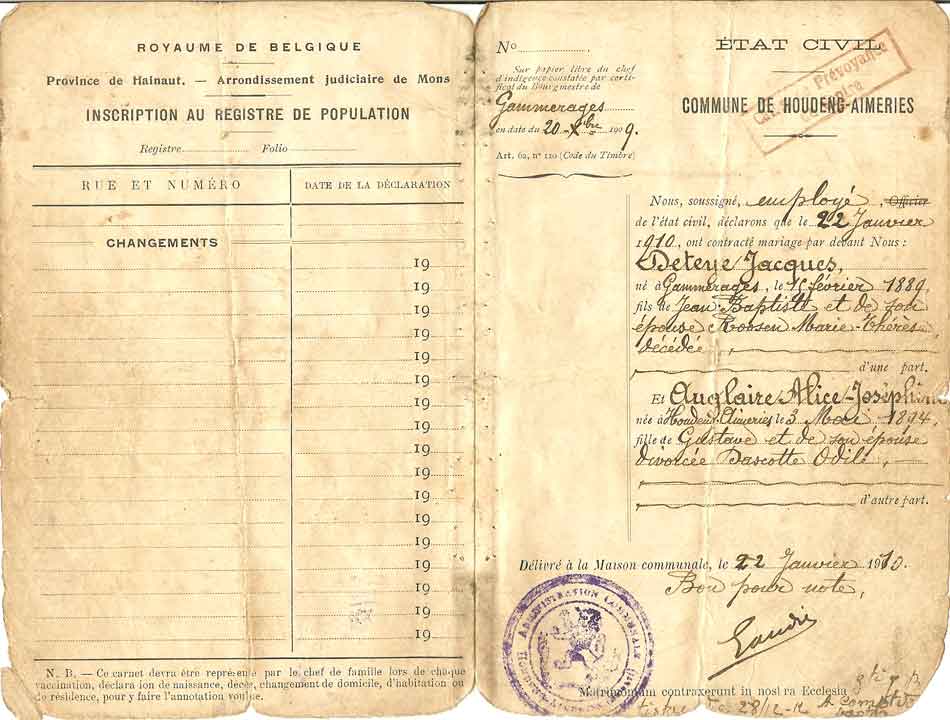 ROYAUME DE BELGIQUE
Province de Hainaut. — Arrondissement judiciaire de Mons
INSCRIPTION AU REGISTRE DE POPULATION
Registre. Folio
RUE ET NUMÉRO
DATE DE LA DÉCLARATION
CHANGEMENTS
19
19
19
19
19
19
19
19
19
19
19
19
19
19
19
19
19
N. B. — Ce carnet devra être représenté par le chef de famille lors de chaque
vaccination, déclaration de naissance, décès, changement de domicile, d'habitation ou
de résidence, pour y faire l'annotation voulue.
No
Sur papier libre du chef
d'indigence constatée par certi-
ficat du Bourgmestre de
Gammerages
en date du 20 Xbre 1909.
Art. 62, n° 120 (Code du Timbre)
ÉTAT CIVIL
Prévoyance
COMMUNE DE HOUDENG-AIMERIES
Nous, soussigné, employé, Officier
de l'état civil, déclarons que le 22 Janvier
1910, ont contracté mariage par devant Nous :
Deteye Jacques,
né à Gammerages, le février 1889,
fils de Jean-Baptiste et de son
épouse Marie-Thérèse,
décédée,
d'une part.
Et Auglaire Alice-Joséphine
née à Houdeng-Aimeries le 3 Mai 1894,
fille de Gustave et de son épouse
divorcée Bascotte Odile,
d'autre part.
Délivré à la Maison communale, le 22 Janvier 1910.
Bon pour note,
ADMINISTRATION COMMUNALE
HOUDENG-AIMERIES
Matrimonium contraxerunt in nostra Ecclesia
28/12